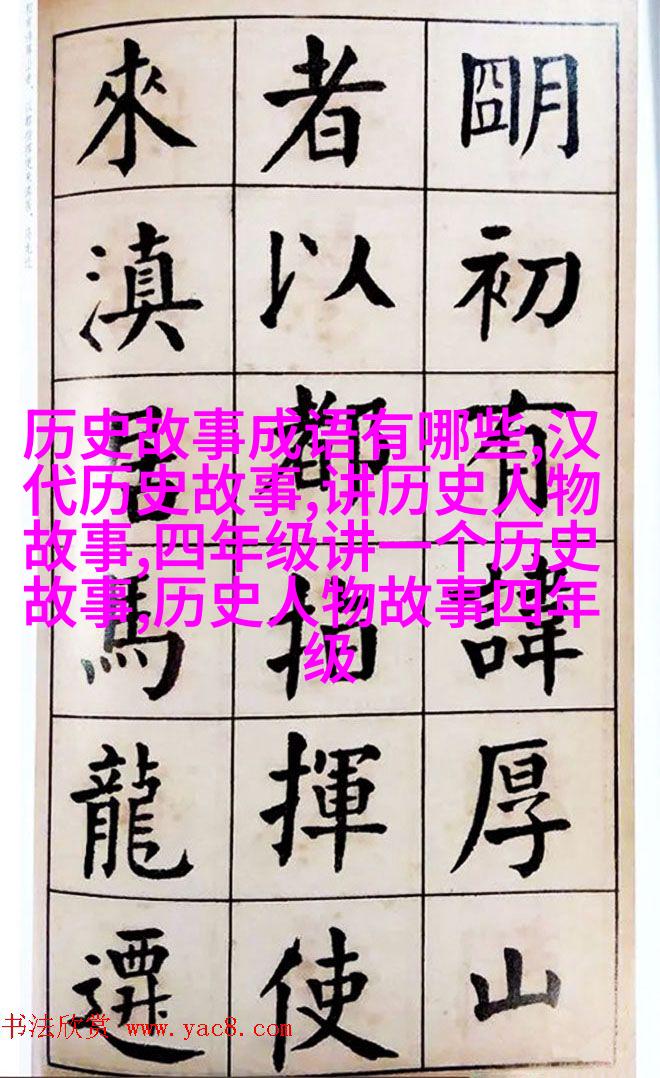 朙初有諱厚山
者以都指揮使
來滇居馬龍遷
历史故事成语有哪些,汉
代历史故事,讲历史人物
故事,四年级讲一个历史
故事,历史人物故事四年
级
书法欣赏 www.yac8.com